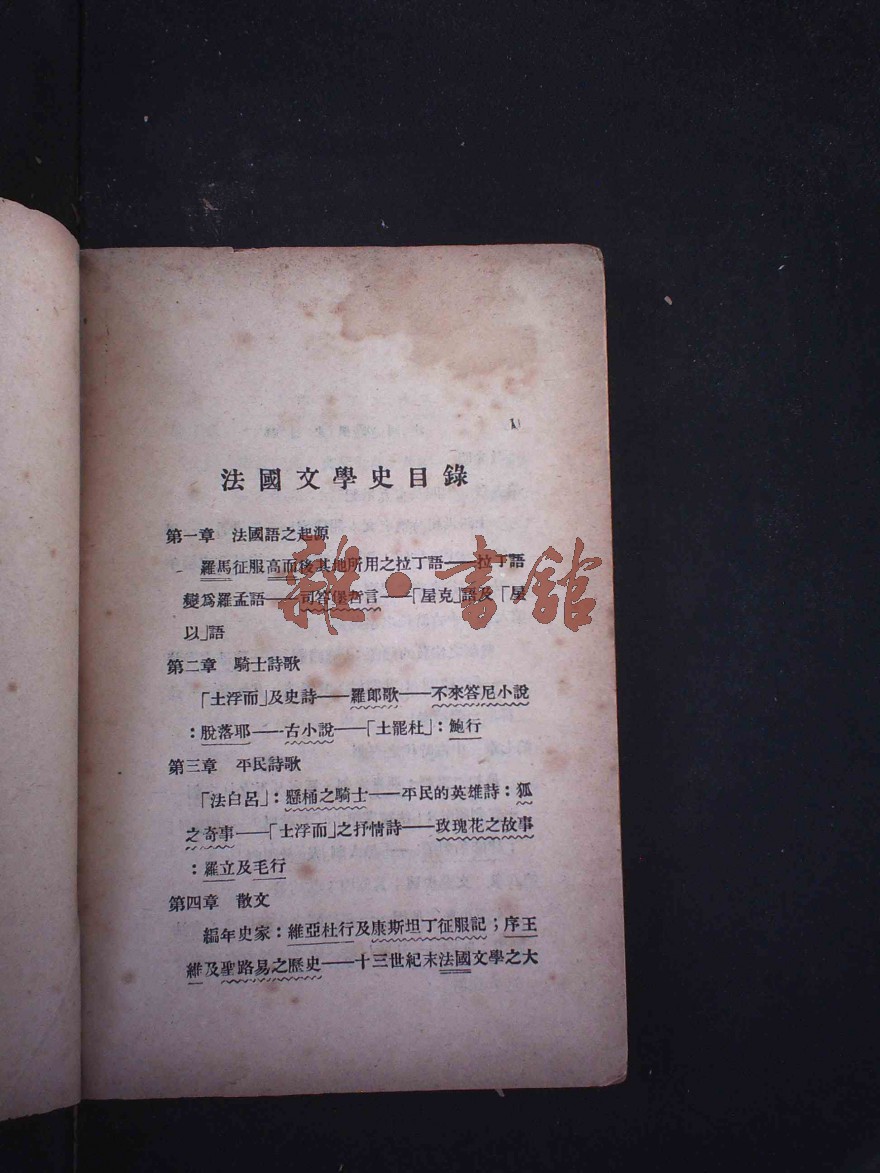 1
法國文學史目錄
第一章 法國語之起源
羅馬征服高而後其地所用之拉丁語——拉丁語
變爲羅孟語——司答堡誓言——「屋克」語及「屋
以」語
第二章 騎士詩歌
「土浮而」及史詩——羅郎歌——不來答尼小說
：脫落耶——古小說——「土罷杜」：鮑行
第三章 平民詩歌
「法白呂」：懸桶之騎士——平民的英雄詩：狐
之奇事——「土浮而」之抒情詩——玫瑰花之故事
：羅立及毛行
第四章 散文
編年史家：維亞杜行及康斯坦丁征服記；序王
維及聖路易之歷史——十三世紀末法國文學之大
雜·書館